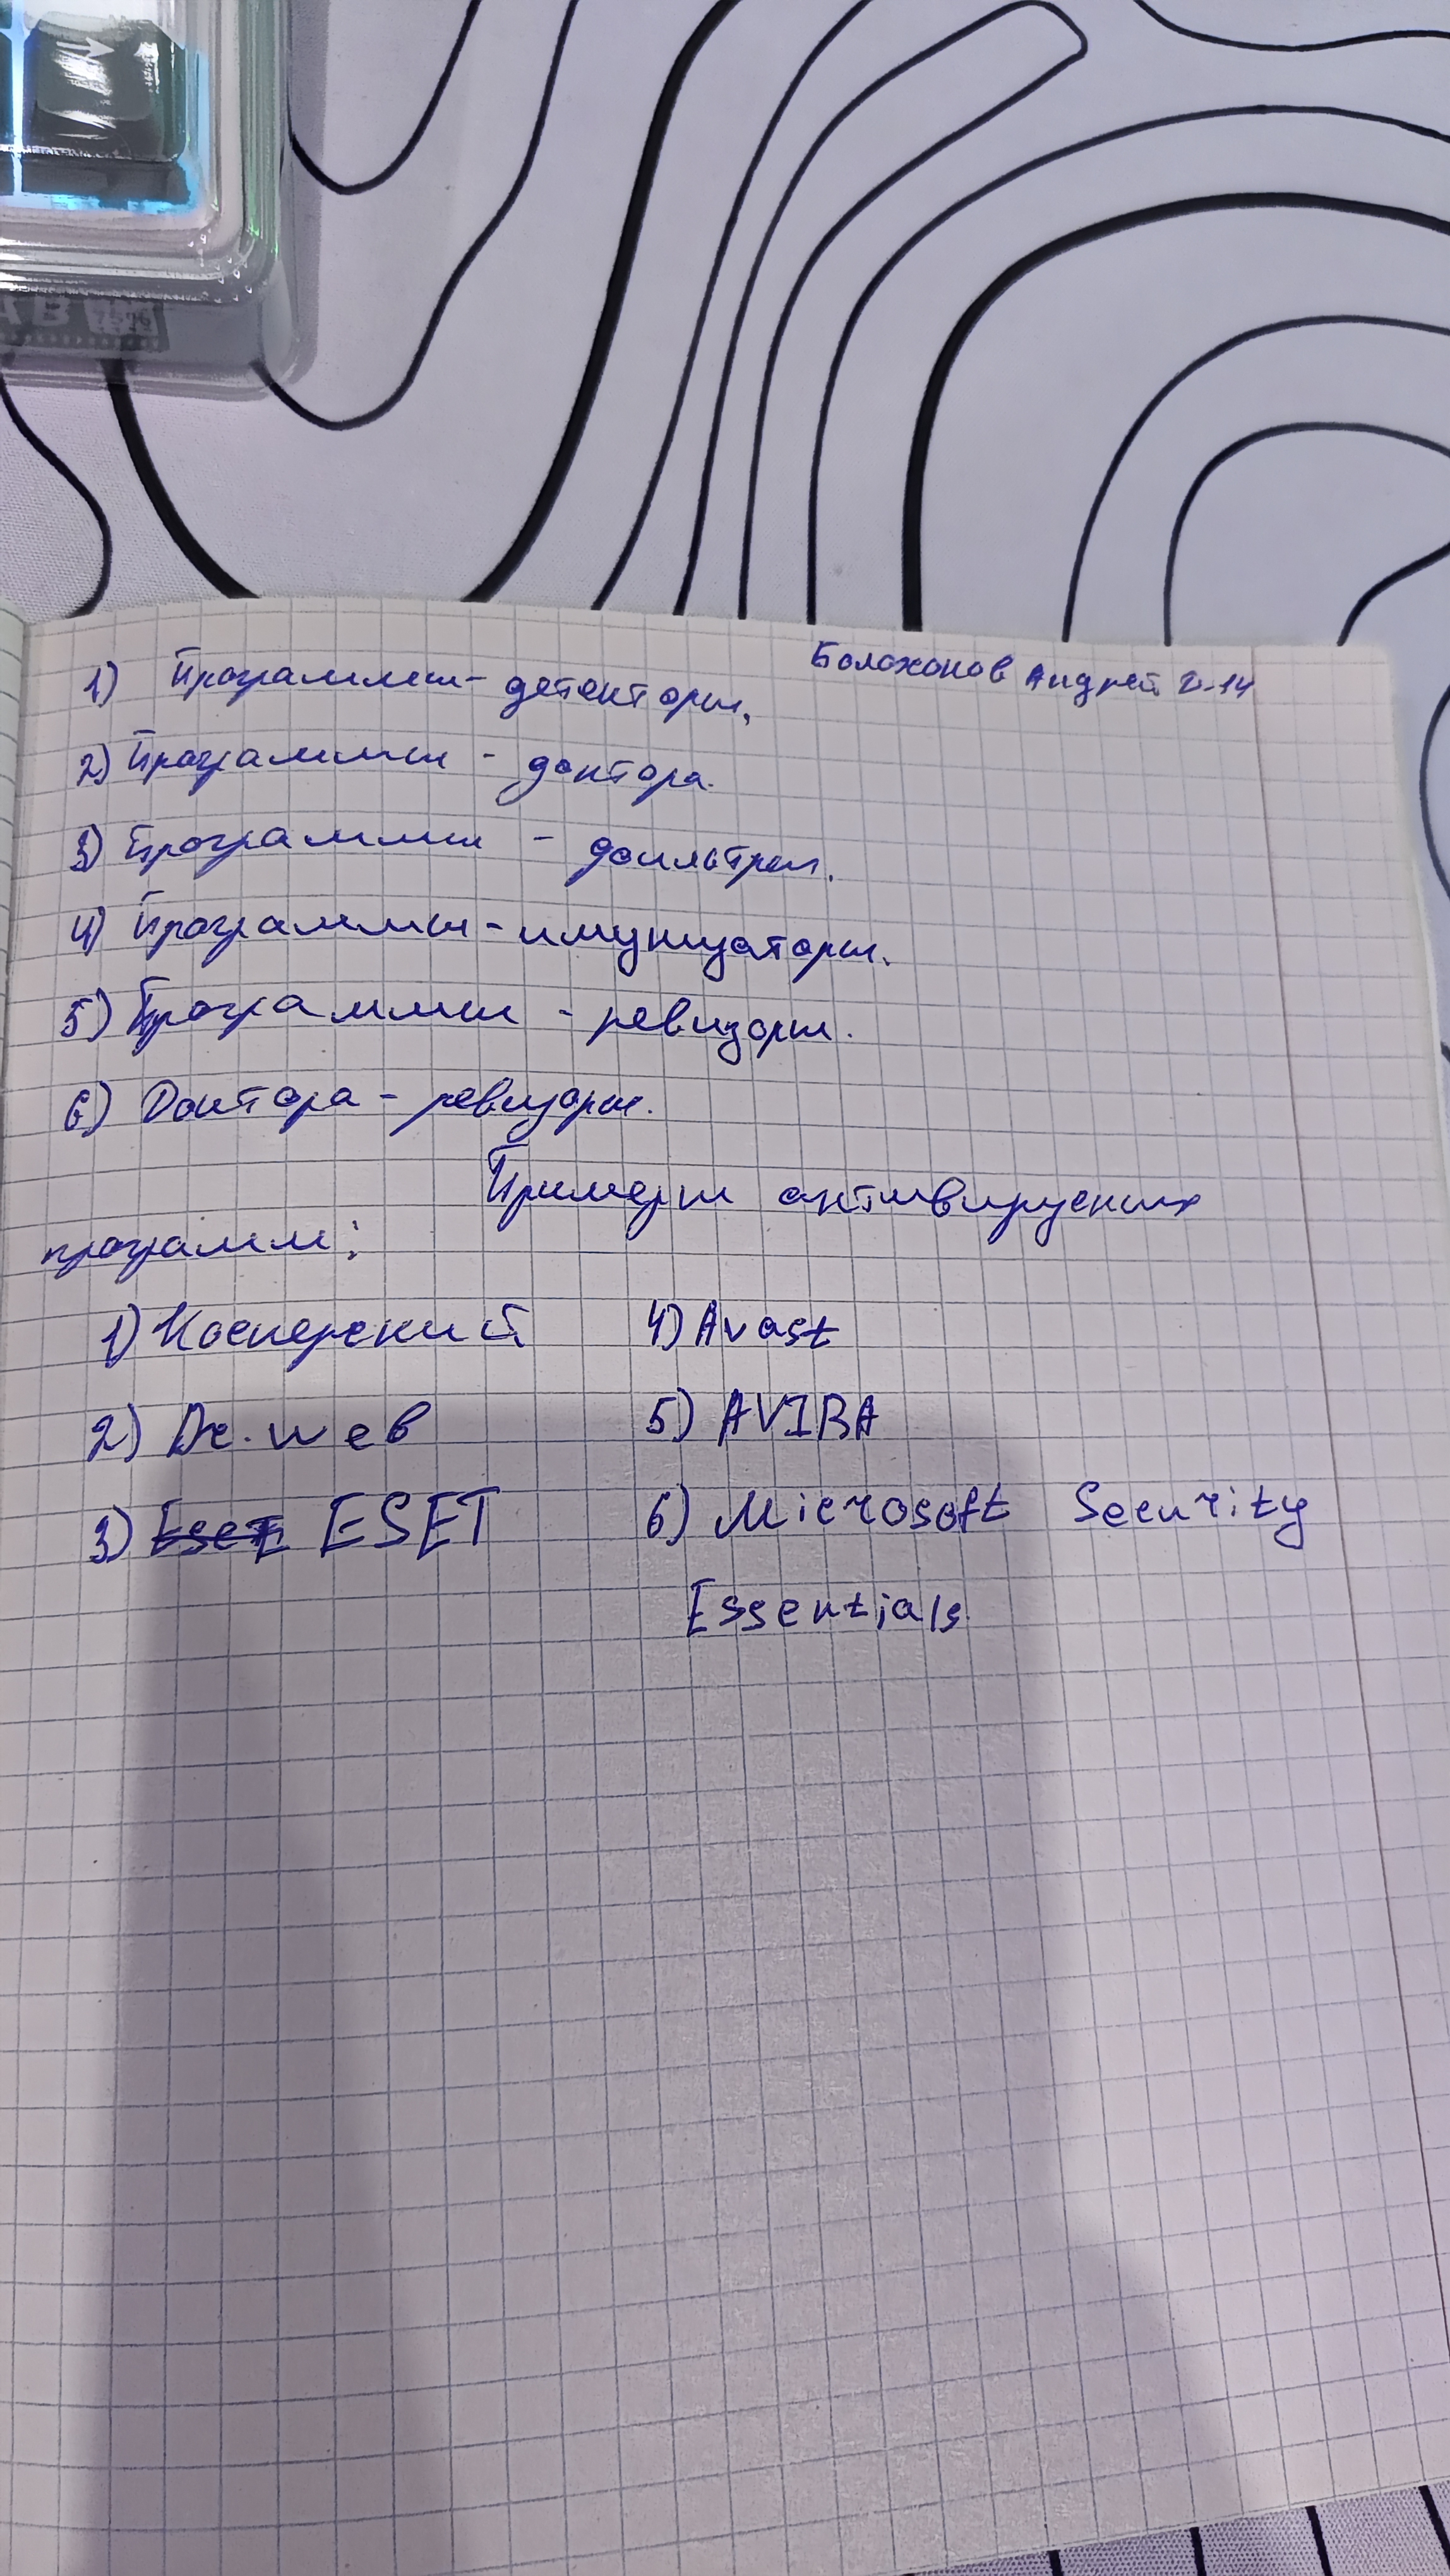 Болохонов Андрей D-14
1) Программы-детекторы,
2) Программы - доктора.
3) Программы - фильтры.
4) Программы-имунизаторы.
5) Программы - ревизоры.
6) Доктора - ревизоры.
Примеры антивирусных
программ:
1) Касперский 4) Avast
2) Dr. web 5) AVIRA
3) Eset ESET 6) Microsoft Security
Essentials